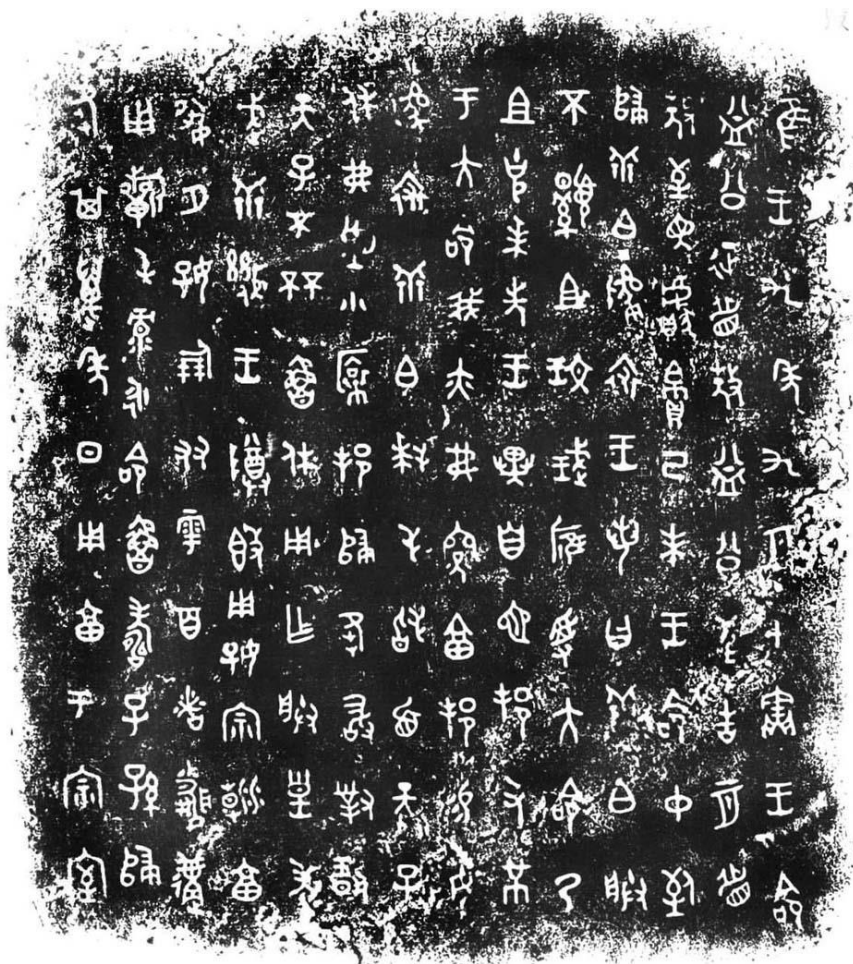 隹王九年九月甲寅王命
益公征眉敖益公至告二月眉
敖至見獻帛己未王命中致
歸乖白貔裘王若曰乖白朕
不顯且玟珷雁受大命乃
且克𠦪先王異自它邦又芾
于大命我亦弗深享邦易女
貔裘乖白拜手𩒨首天子
休弗朢小裔邦歸夆敢對揚
天子不㔻魯休用乍朕皇考
武乖幾王尊𣪘用好宗廟享
夙夕好倗友雩百者婚遘
用祈屯彔永命魯壽子孫歸
夆其邁年日用享于宗室